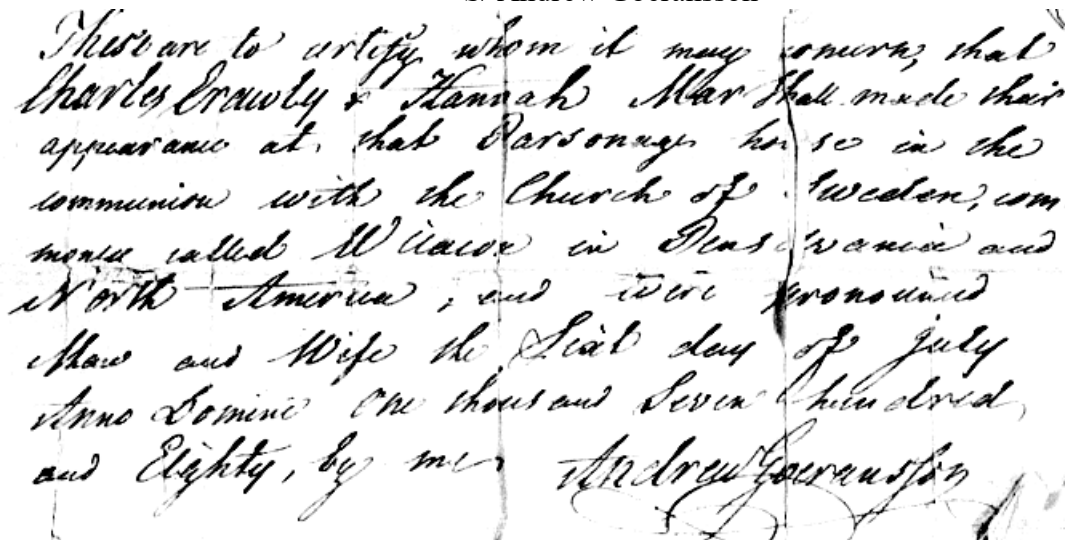 S. Andrew Goeransson
These are to certify whom it may concern, that
Charles Crawly & Hannah Marshall made their
appearance at that Parsonage house in the
communion with the Church of Sweden, com
monly called in Pensylvania and
North America, and were pronounced
Man and Wife the day of July
Anno Domini One thousand Seven hundred
and Eighty, by me Andrew Goeransson